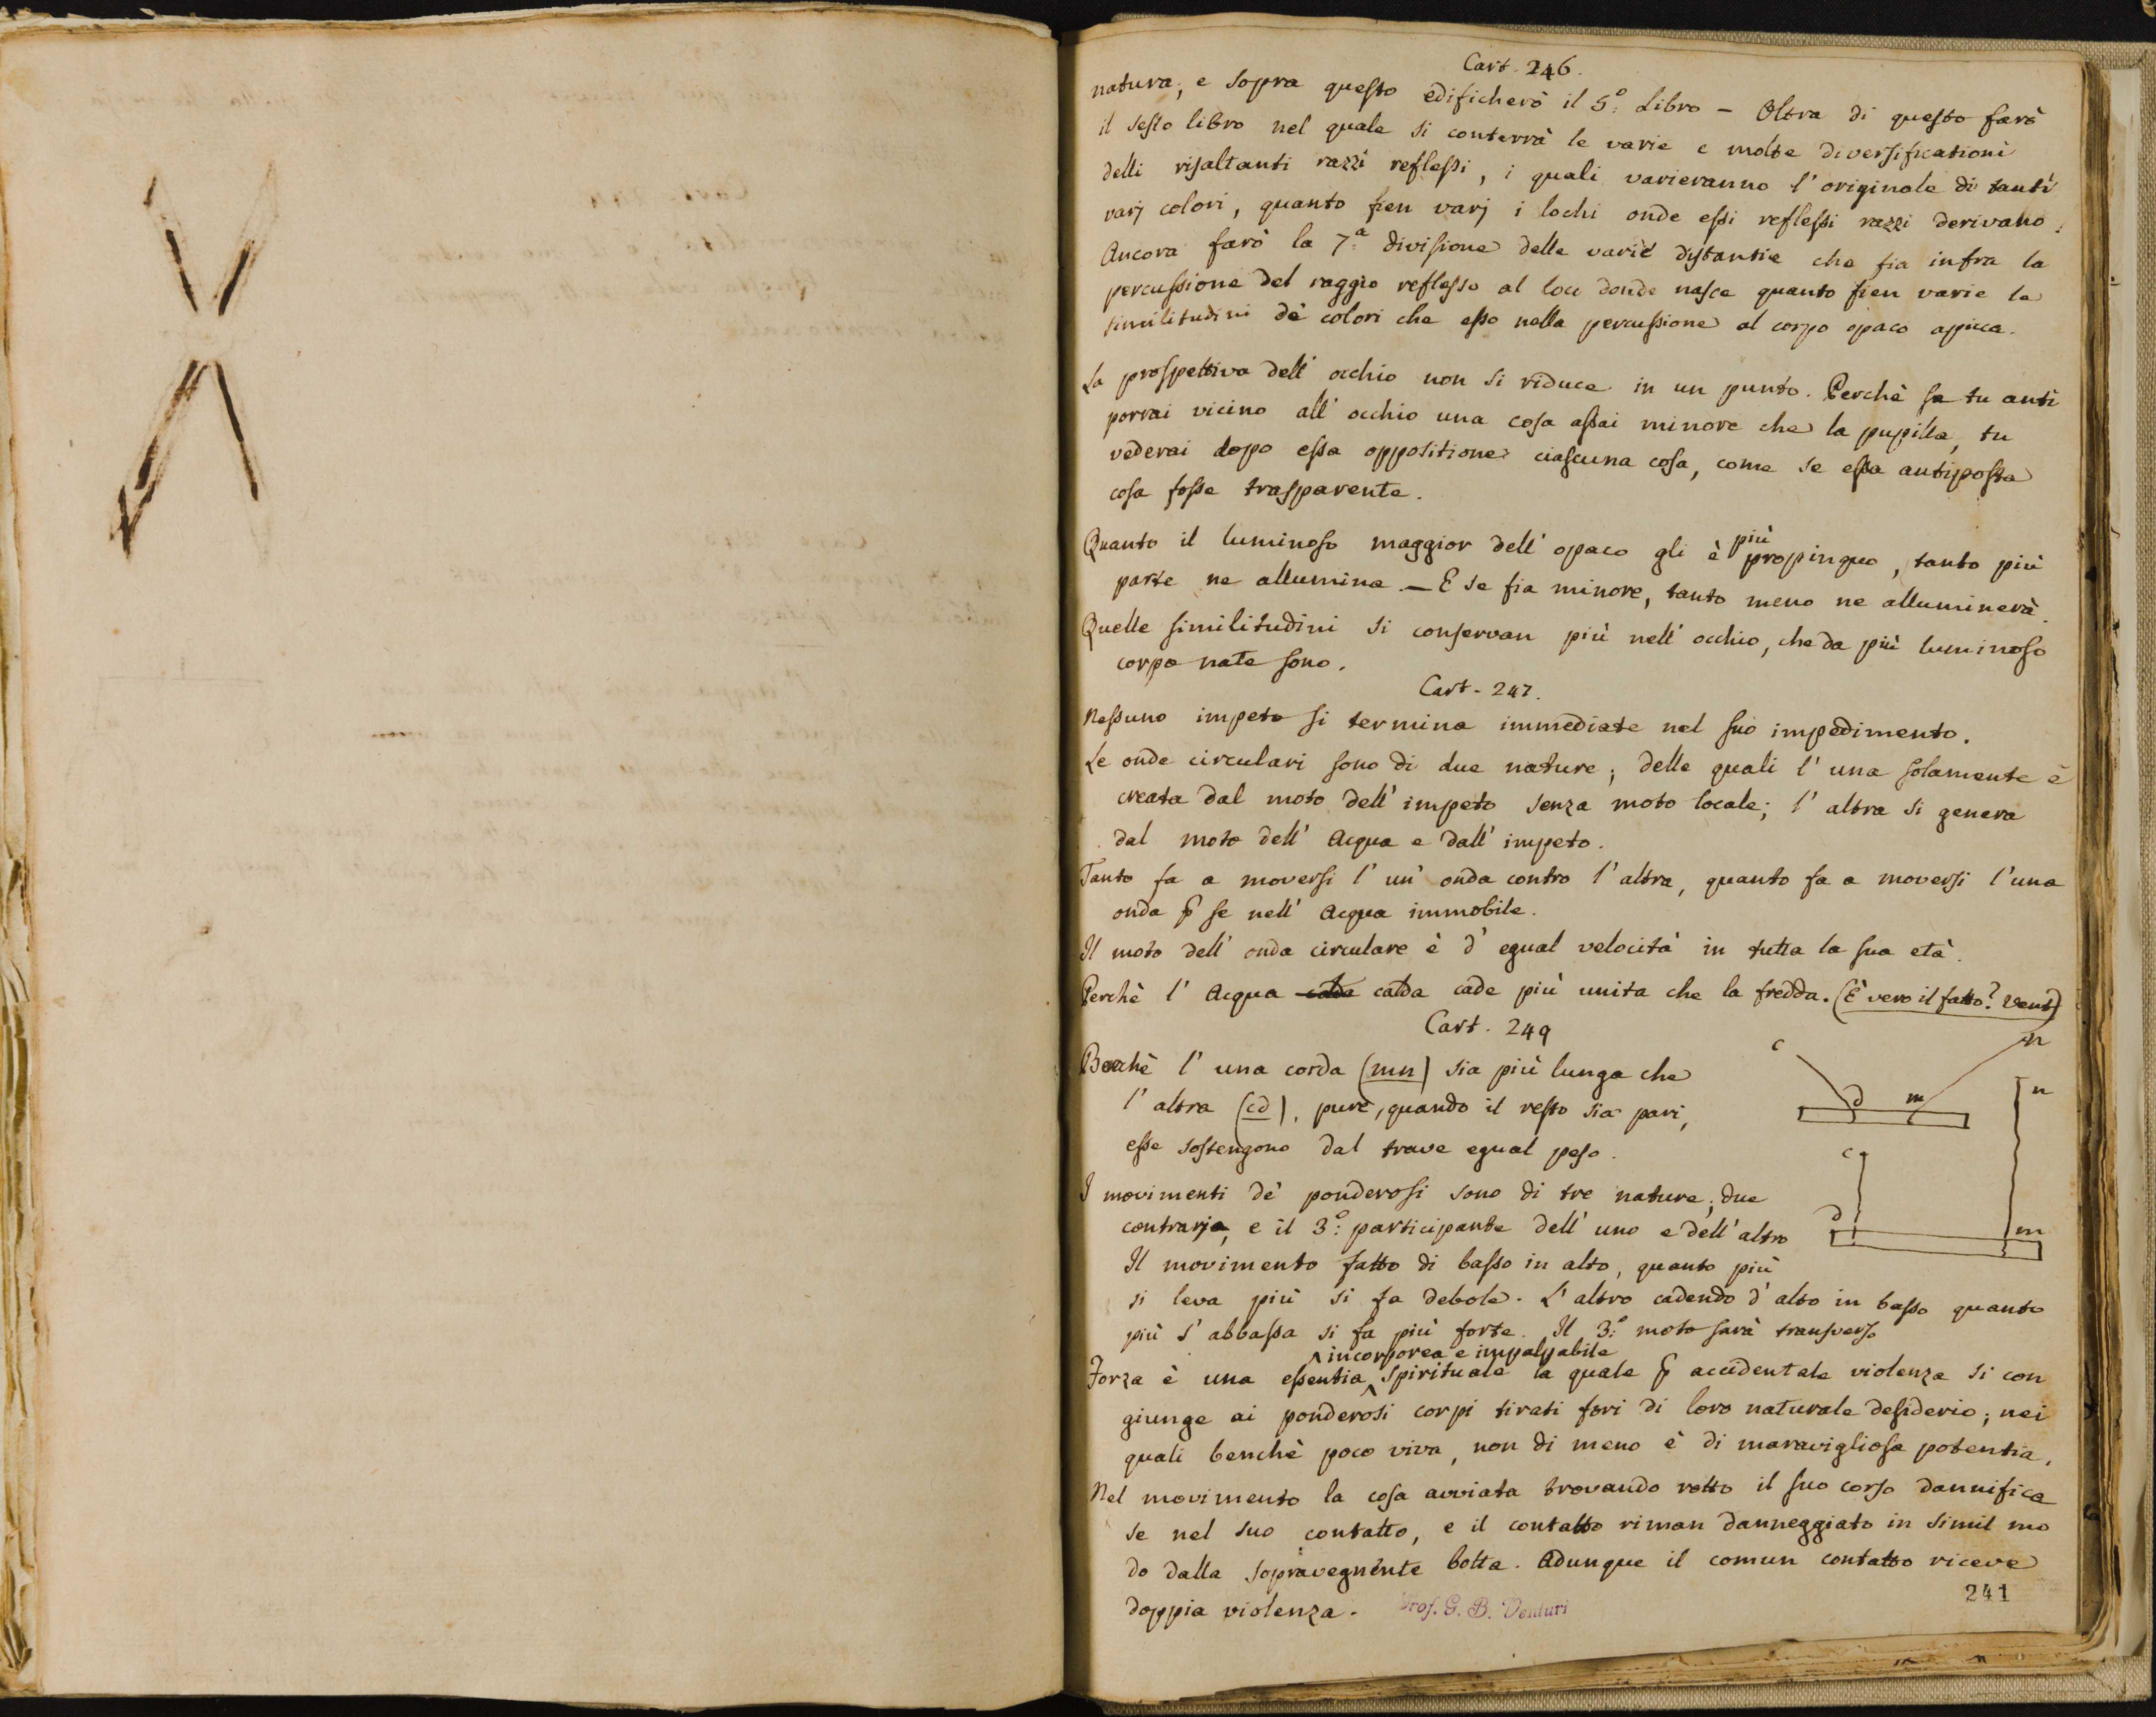 Cart. 246.
natura; e sopra questo edificherò il 5.º Libro – Oltra di questo farò
il sesto libro nel quale si conterrà le varie e molte diversificationi
delli risaltanti razzi reflessi, i quali varieranno l'originale di tanti
varj colori, quanto fien varj i lochi onde essi reflessi razzi derivano.
Ancora farò la 7.ª divisione delle varie distantie che fia infra la
percussione del raggio reflesso al loco donde nasce quanto fien varie le
similitudini de' colori che esso nella percussione al corpo opaco apicca.
La prospettiva dell'occhio non si riduce in un punto. Perchè se tu anti
porrai vicino all'occhio una cosa assai minore che la pupilla, tu
vederai dopo essa oppositione ciascuna cosa, come se essa antiposta
cosa fosse trasparente.
Quanto il luminoso maggior dell'opaco gli è più propinquo, tanto più
parte ne allumina. – E se fia minore, tanto meno ne alluminerà.
Quelle similitudini si conservan più nell'occhio, che da più luminoso
corpo nate sono.
Cart. 247.
Nessuno impeto si termina immediate nel suo impedimento.
Le onde circulari sono di due nature; delle quali l'una solamente è
creata dal moto dell'impeto senza moto locale; l'altra si genera
dal moto dell'Acqua e dall'impeto.
Tanto fa a moversi l'un'onda contro l'altra, quanto fa a moversi l'una
onda p̄ se nell'Acqua immobile.
Il moto dell'onda circulare è d'egual velocità in tutta la sua età.
Perchè l'Acqua calda calda cade più unita che la fredda. (È vero il fatto? Vent.)
Cart. 249
Benchè l'una corda (mn) sia più lunga che
l'altra (cd), pure, quando il resto sia pari,
esse sostengono dal trave egual peso.
c n
d m
n
c
d m
I movimenti de' ponderosi sono di tre nature; due
contrarje, e il 3.º participante dell'uno e dell'altro
Il movimento fatto di basso in alto, quanto più
si leva più si fa debole. L'altro cadendo d'alto in basso quanto
più s'abbassa si fa più forte. Il 3.º moto sarà transverso
^ incorporea e impalpabile
Forza è una essentia ^ spirituale la quale p̄ accidentale violenza si con
giunge ai ponderosi corpi tirati fori di loro naturale desiderio; nei
quali benchè poco viva, non di meno è di maravigliosa potentia.
Nel movimento la cosa avviata trovando rotto il suo corso dannifica
se nel suo contatto, e il contatto riman danneggiato in simil mo
do dalla sopravegnente botta. Adunque il comun contatto riceve
doppia violenza.
Prof. G. B. Venturi
241